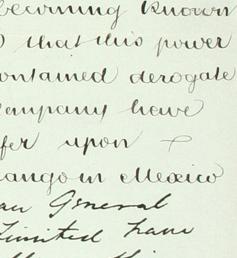 becoming known
that this power
contained derogate
Company have
fer upon
ango in Mexico
General
Limited have